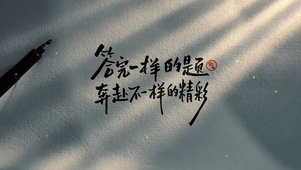 答完一样的题
奔赴不一样的精彩